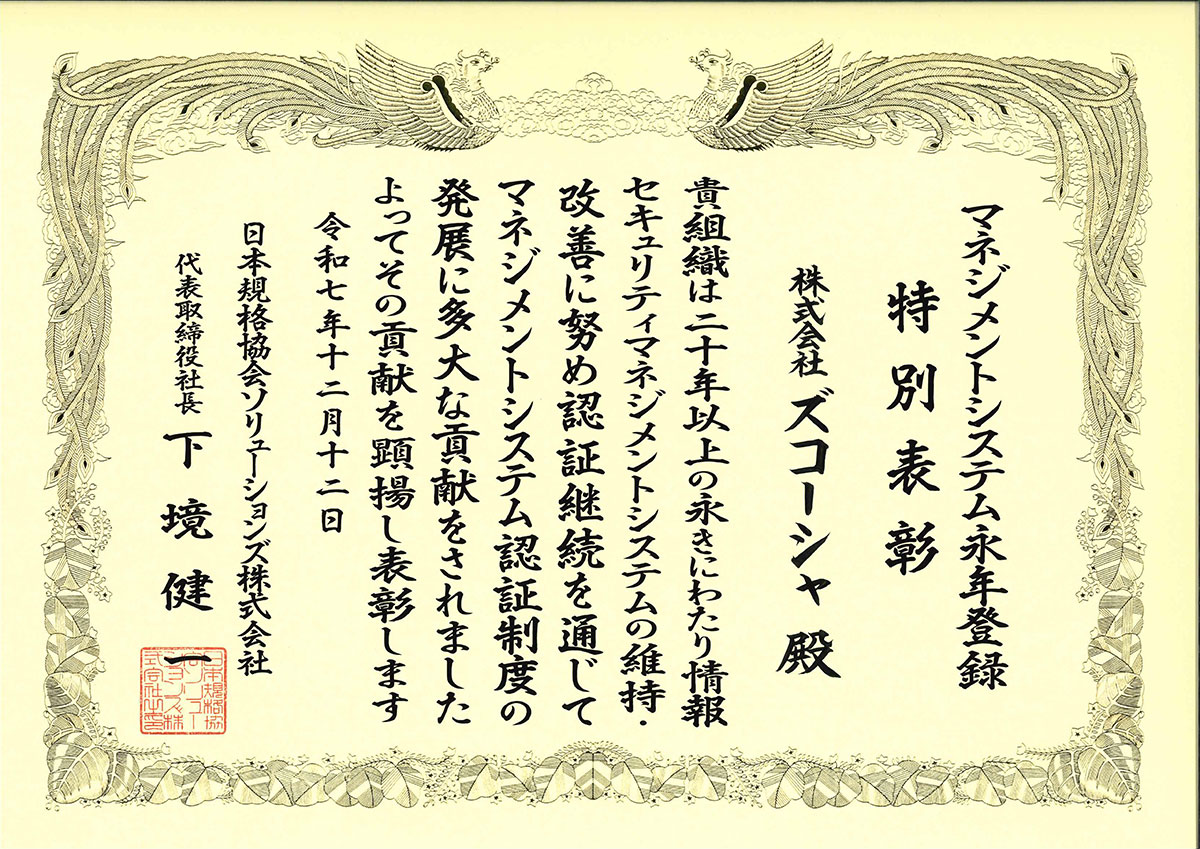 マネジメントシステム永年登録
特別表彰
株式会社 ズコーシャ 殿
貴組織は二十年以上の永きにわたり情報
セキュリティマネジメントシステムの維持・
改善に努め認証継続を通じて
マネジメントシステム認証制度の
発展に多大な貢献をされました
よってその貢献を顕揚し表彰します
令和七年十二月十二日
日本規格協会ソリューションズ株式会社
代表取締役社長 下境健一
日本規格協
会ソリュー
ションズ株
式会社之印